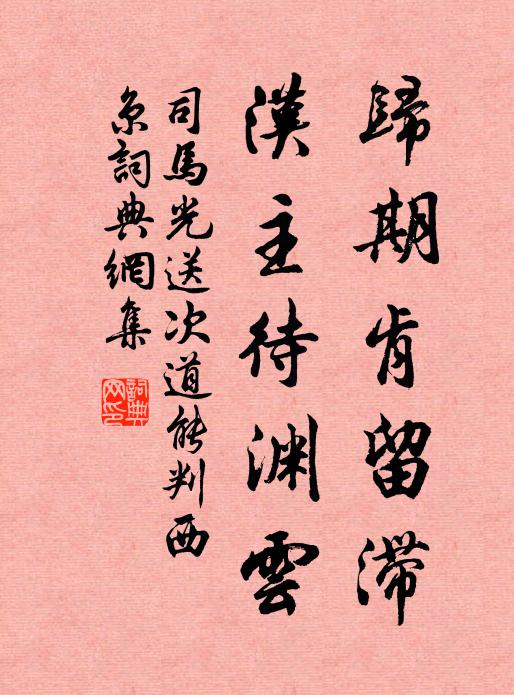 歸期肯留滯
漢主待渊雲
司馬光送次道能判西
京詞典網集
詞典
网印